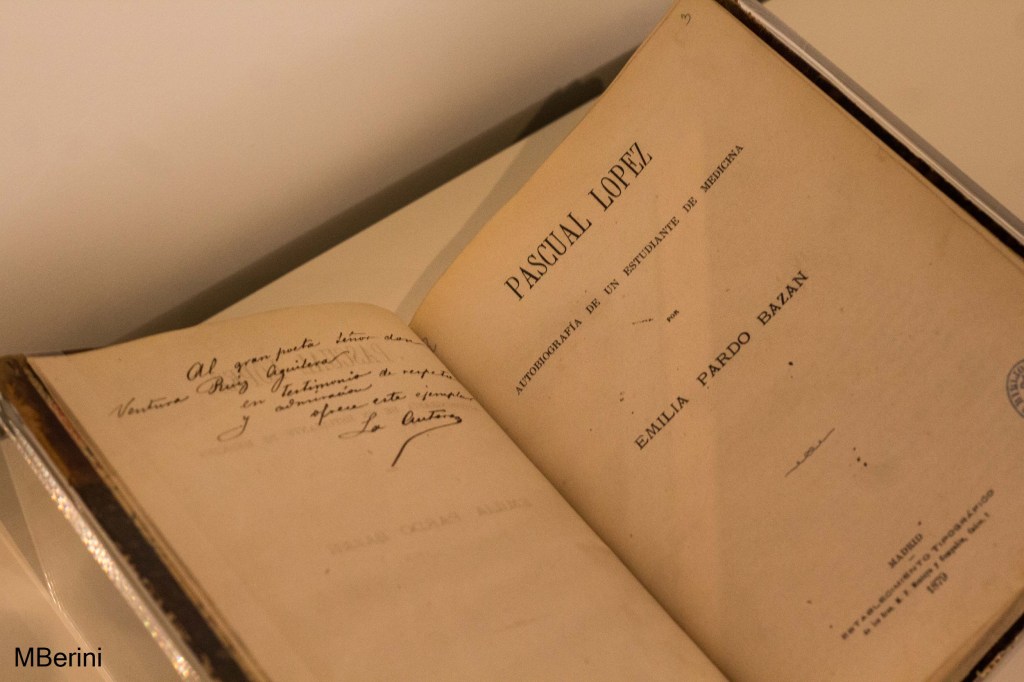 Al gran poeta Señor don
Ventura Ruiz Aguilera
en testimonio de respeto
y admiración ofrece este ejemplar
La Autora
3
PASCUAL LOPEZ
AUTOBIOGRAFÍA DE UN ESTUDIANTE DE MEDICINA
POR
EMILIA PARDO BAZAN
MADRID
ESTABLECIMIENTO TIPOGRÁFICO
de los Sres. M. P. Montoya y Compañía, Caños, 1
1879
MBerini